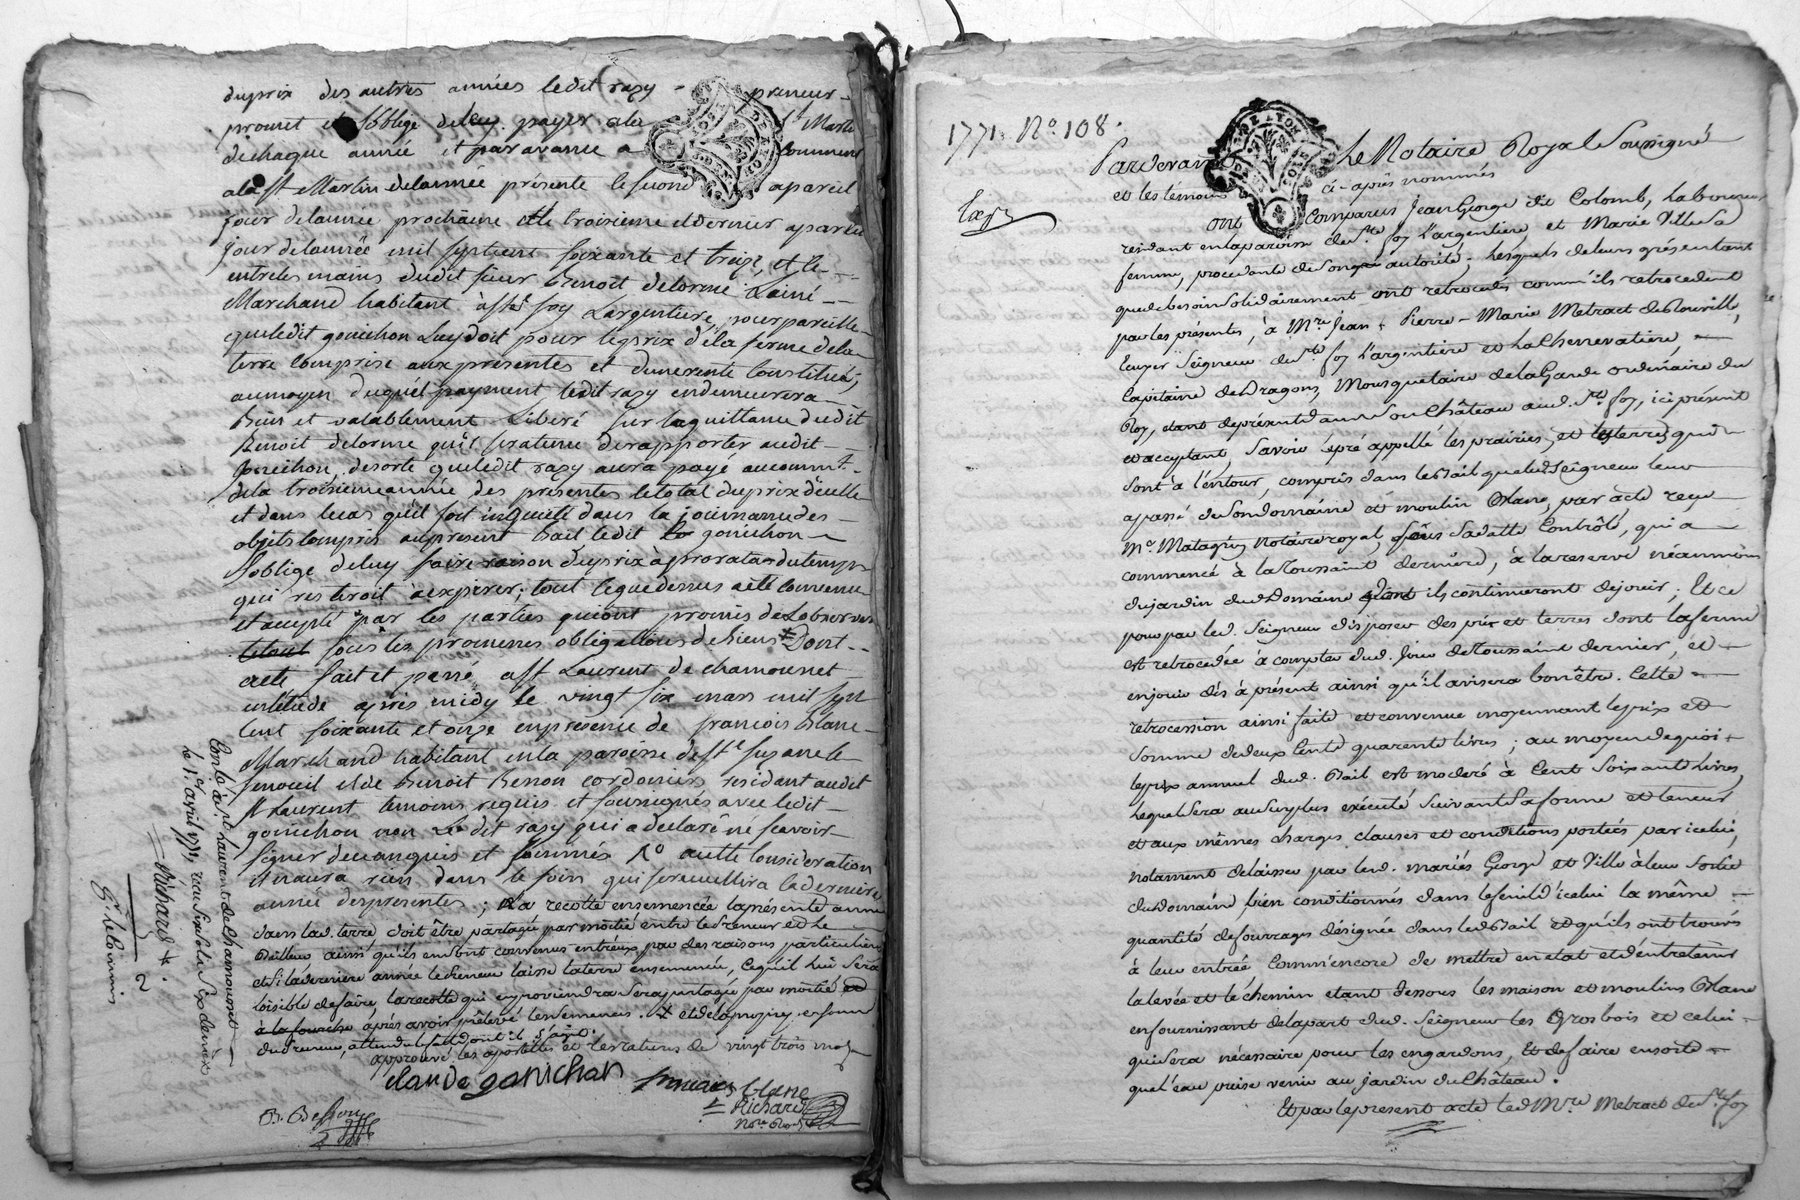 duprix des autres années ledit razy preneur
promet et s'oblige de luy payer a la St Martin
de chaque année et par avance a commencer
a la St Martin de lannée présente le second a pareil
jour de lannée prochaine et le troisieme et dernier a pareil
jour de lannée mil sept cent soixante et treize, et le
entre les mains dudit sieur Benoit delorme Lainé
Marchand habitant à Ste foy Largentiere, pour pareille
que ledit gonichon luy doit pour le prix de la ferme de la
terre comprise aux presentes et dune rente constituée,
au moyen duquel payment ledit razy en demeurera
Bien et valablement libéré sur la quittance dudit
Benoit delorme qu'il sera tenu de rapporter audit
gonichon, de sorte que ledit razy aura payé au commt.
de la troisieme année des presentes le total du prix d'icelle
et dans le cas qu'il soit inquieté dans la jouissance des
objets compris au present Bail ledit gonichon
s'oblige de luy faire raison du prix à prorata du temps
qui resteroit à expirer; tout ce que dessus a été convenu
et accepté par les parties qui ont promis de L'observer
le tout sous les promesses obligations de Biens * Dont
acte fait et passé a St Laurent de chamousset
en létude après midy le vingt six mars mil sept
cent soixante et onze en presence de francois Blanc
Marchand habitant en la paroisse de
fenoueil et de Benoit Besson cordonier résidant audit
St Laurent temoins requis et soussignés avec ledit
gonichon non Le dit razy qui a declaré ne scavoir
signer de ce enquis et sommés 1o autte consideration
il n'aura rien dans le foin qui se recuellira la derniere
année des presentes; La recolte ensemencée la présente année
dans lad. terre doit être partagée par moitié entre le Preneur et le
Bailleur ainsi qu'ils en sont convenus entreux par des raisons particulieres
et si la derniere année le Preneur laisse la terre ensemencée, ce qu'il lui sera
loisible de faire, la recolte qui en proviendra sera partagée par moitié
à la fourche après avoir prélevé les semences.
du preneur, attendu
approuvé les apostilles et les ratures de vingt trois mots
claude gonichan francois blanc
Richard
Nore Royal
B. Besson
Conlé à St Laurent de Chamousset
le 1er avril 1771, reçu
Richard
2
1771 No. 108.
Pardevant Le Notaire Royal Soussigné
et les témoins ci-après nommés
Exp
ont comparus Jean George dit Colomb, Laboureur
residant en la paroisse de Ste foy l'argentiere et Marie Ville sa
femme, procedante de son gré autorité; Lesquels de leurs grés en tant
que de besoin solidairement ont retrocedés comm'ils retrocedent
par les présentes, à Mre Jean-Pierre-Marie Metract de Rouville,
Ecuyer Seigneur de Ste foy l'argentiere et La Chenevatiere,
Capitaine de Dragons, Mousquetaire de la Garde ordinaire du
Roy, étant de présent dans son Château aud. Ste foy, ici présent
et acceptant, Savoir le pré appellé les prairies, et les terres qui
sont à l'entour, compris dans le Bail que led. Seigneur leur
a passé de son domaine et moulin Blanc, par acte reçu
Me. Matagrin notaire royal, sous sa datte Contrôlé, qui a
commencé à la Toussaint derniere, à la reserve néanmoins
du jardin dud. Domaine dont ils continueront de jouir. Et ce
pour par led. Seigneur disposer des prés et terres dont la ferme
est retrocedée à compter dud. jour de Toussaint dernier, et
en jouir dès à présent ainsi qu'il avisera bon être. Cette
retrocession ainsi faite et convenue moyennant le prix et
Somme de deux Cents quarente livres; au moyen de quoi
le prix annuel dud. Bail est moderé à Cent Soixante livres,
Lequel sera au surplus exécuté suivant sa forme et teneur
et aux mêmes charges clauses et conditions portées par icelui,
notament de laisser par led. mariés George et Ville à leur Sortie
dud. Domaine bien conditionnés dans le fenil d'icelui la même
quantité de fourrages désignée dans led. Bail et qu'ils ont trouvés
à leur entrée Comm'encore de mettre en etat et d'entretenir
la levée et le chemin etant dessous les maison et moulins Blanc
en fournissant de la part dud. Seigneur les Gros bois et celui
qui sera nécessaire pour les engardons, Et de faire en sorte
que l'eau puise venir au jardin du Château.
Et par le present acte led. Mre Metract de Ste foy